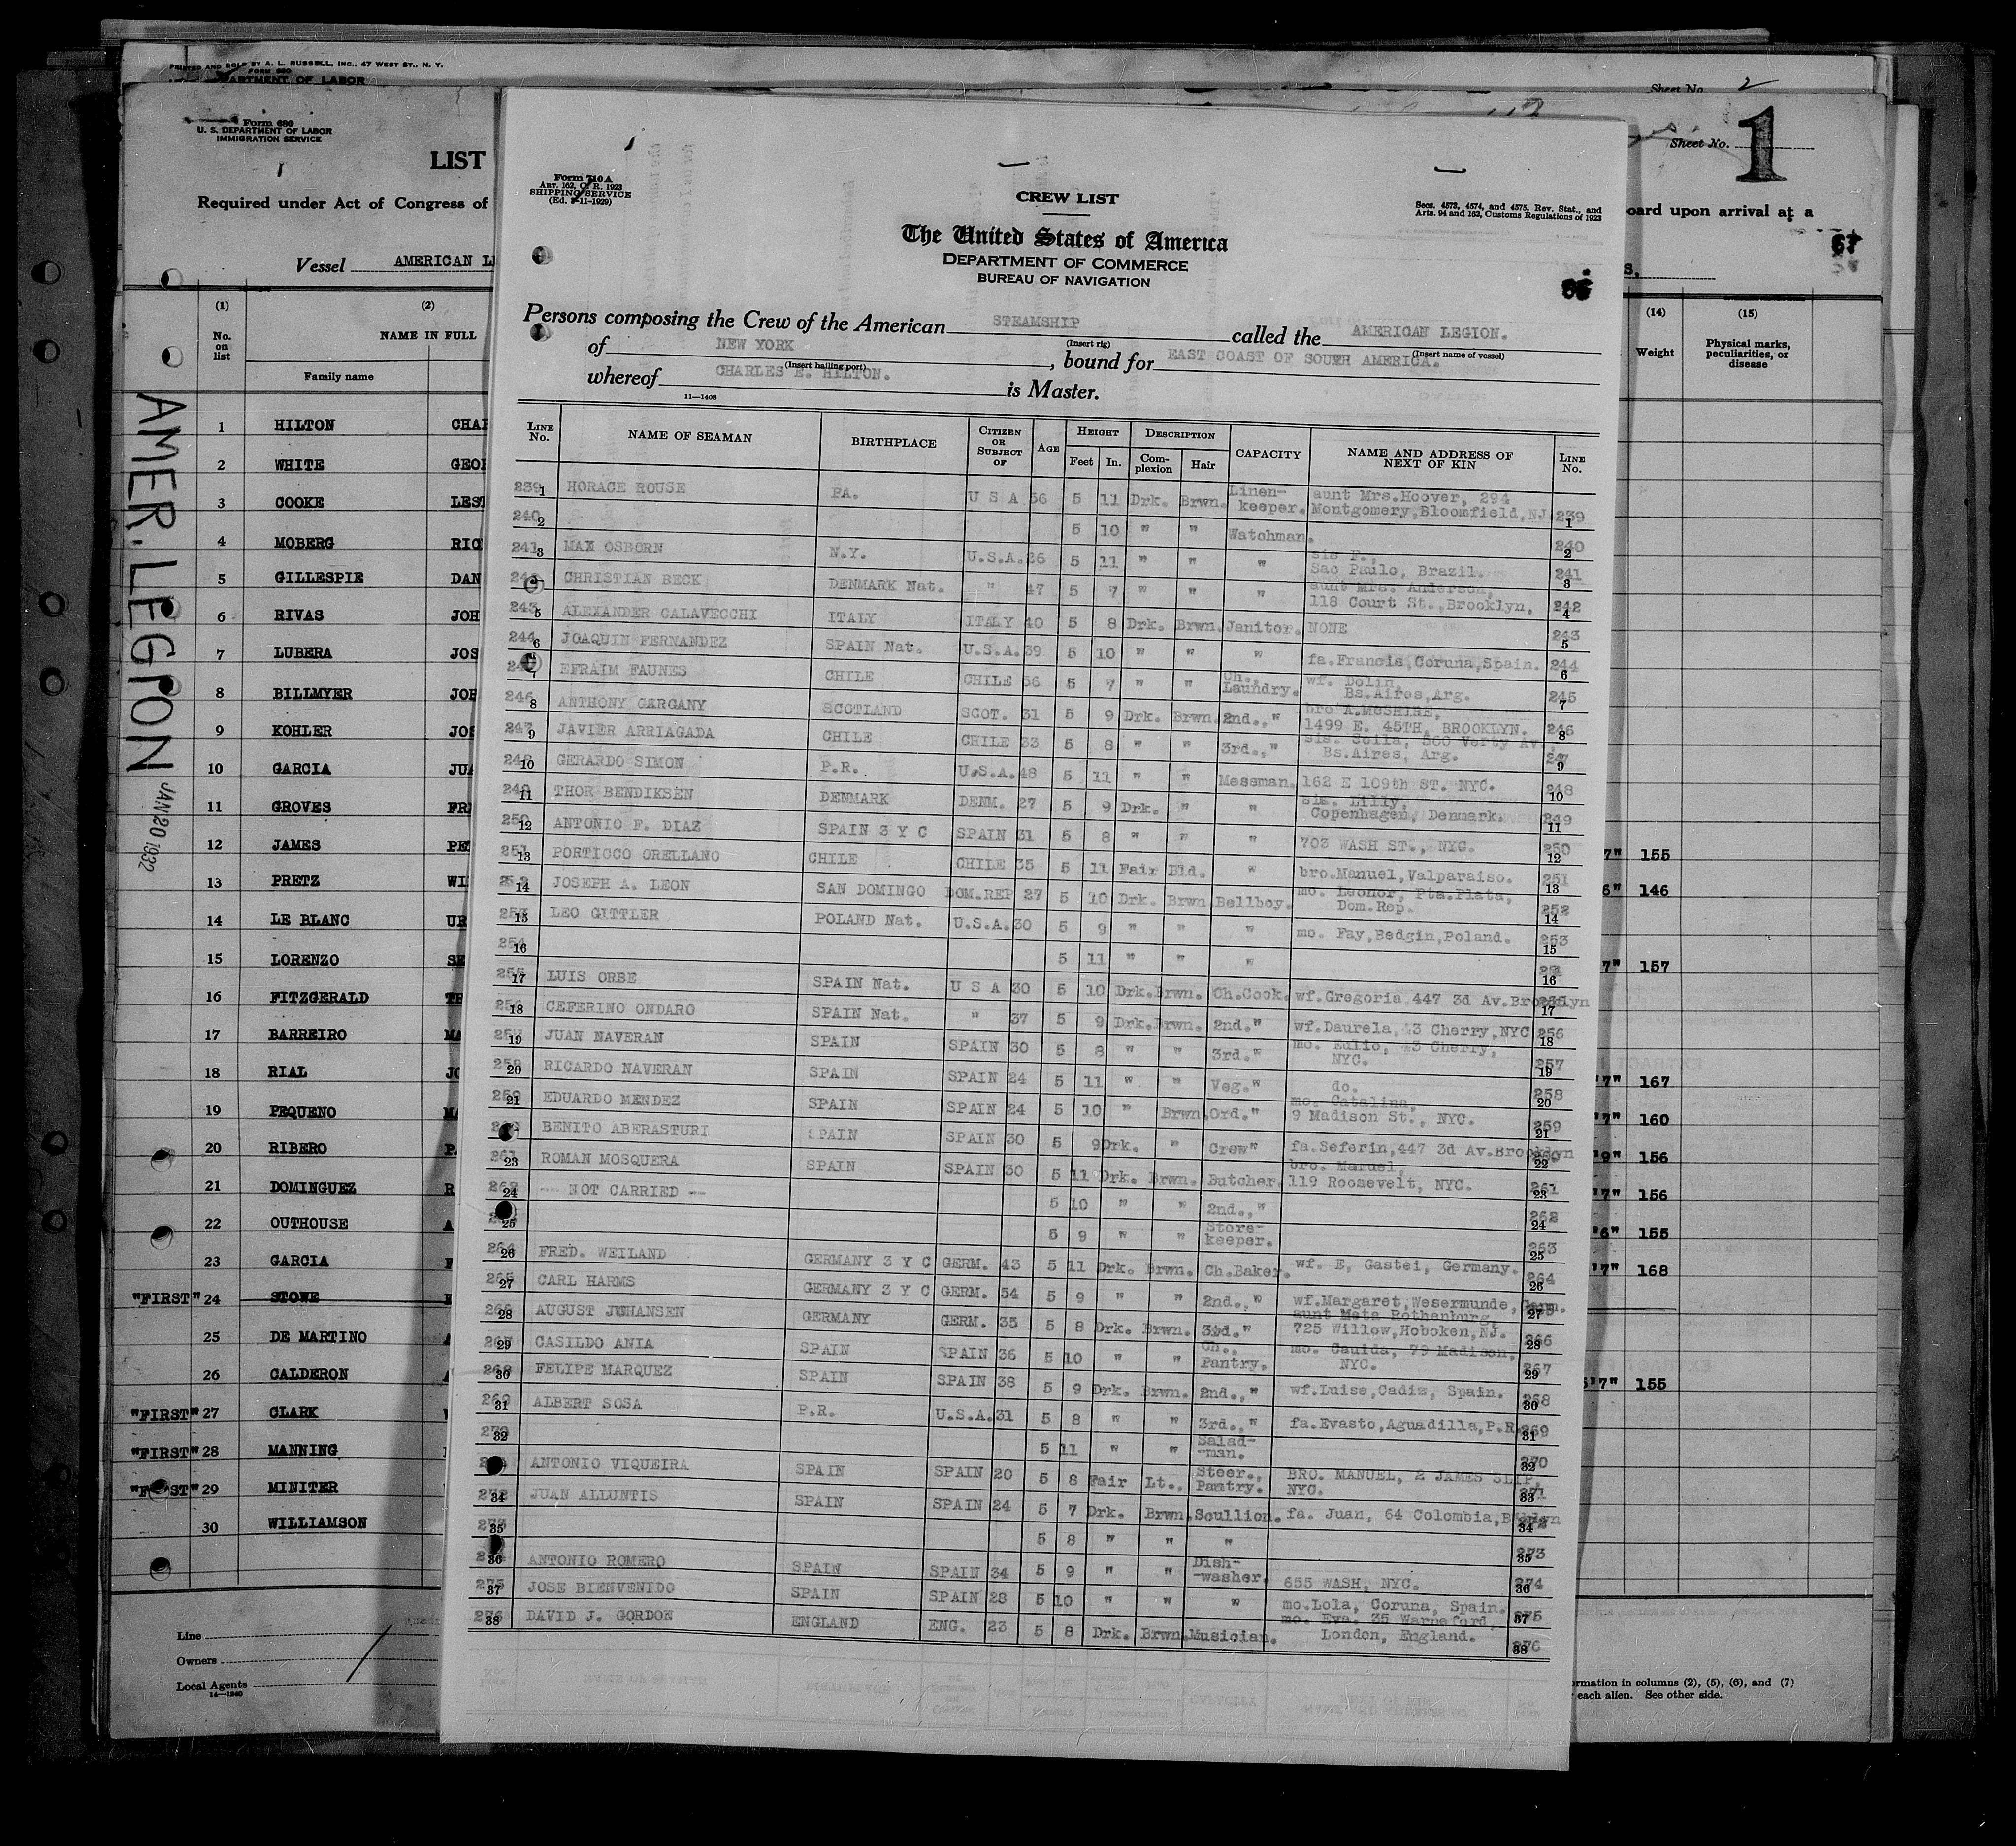 PRINTED AND SOLD BY A. L. RUSSELL, INC., 47 WEST ST., N. Y.
FORM 680
DEPARTMENT OF LABOR
Sheet No. 2
Form 680
U. S. DEPARTMENT OF LABOR
IMMIGRATION SERVICE
LIST
Sheet No. 1
Required under Act of Congress of
board upon arrival at a
Vessel AMERICAN L
(1) (2) (14) (15)
No. on list
NAME IN FULL
Family name
Weight
Physical marks, peculiarities, or disease
AMER. LEGION JAN 20 1932
1 HILTON CHA
2 WHITE GEO
3 COOKE LES
4 MOBERG RIC
5 GILLESPIE DAN
6 RIVAS JOH
7 LUBERA JOS
8 BILLMYER JOH
9 KOHLER JOS
10 GARCIA JUA
11 GROVES FR
12 JAMES PE 7" 155
13 PRETZ WI 6" 146
14 LE BLANC UR
15 LORENZO SE 7" 157
16 FITZGERALD TH
17 BARREIRO MA
18 RIAL JO 7" 167
19 PEQUENO MA 7" 160
20 RIBERO P 9" 156
21 DOMINGUEZ R 7" 156
22 OUTHOUSE A 6" 155
23 GARCIA 7" 168
"FIRST" 24 STONE
25 DE MARTINO
26 CALDERON 7" 155
"FIRST" 27 CLARK
"FIRST" 28 MANNING
"FIRST" 29 MINITER
30 WILLIAMSON
Line
Owners
Local Agents
14—1240
ormation in columns (2), (5), (6), and (7)
each alien. See other side.
Form 710 A
ART. 162, C. R. 1923
SHIPPING SERVICE
(Ed. 3-11-1929)
CREW LIST
Secs. 4573, 4574, and 4575, Rev. Stat., and
Arts. 94 and 162, Customs Regulations of 1923
The United States of America
DEPARTMENT OF COMMERCE
BUREAU OF NAVIGATION
Persons composing the Crew of the American STEAMSHIP called the AMERICAN LEGION.
(Insert rig) (Insert name of vessel)
of NEW YORK, bound for EAST COAST OF SOUTH AMERICA.
(Insert hailing port)
whereof CHARLES E. HILTON. is Master.
11—1408
LINE No. NAME OF SEAMAN BIRTHPLACE CITIZEN OR SUBJECT OF AGE HEIGHT Feet In. DESCRIPTION Complexion Hair CAPACITY NAME AND ADDRESS OF NEXT OF KIN LINE No.
239 1 HORACE ROUSE PA. U S A 56 5 11 Drk. Brwn. Linen-keeper. aunt Mrs.Hoover, 294 Montgomery,Bloomfield,NJ 239 1
240 2 5 10 " " Watchman. 240 2
241 3 MAX OSBORN N.Y. U.S.A. 26 5 11 " " " sis F., Sao Paulo, Brazil. 241 3
CHRISTIAN BECK DENMARK Nat. " 47 5 7 " " " aunt Mrs. Anderson, 118 Court St.,Brooklyn, 242 4
243 5 ALEXANDER CALAVECCHI ITALY ITALY 40 5 8 Drk. Brwn. Janitor. NONE 243 5
244 6 JOAQUIN FERNANDEZ SPAIN Nat. U.S.A. 39 5 10 " " " fa.Francis,Coruna,Spain. 244 6
7 EFRAIM FAUNES CHILE CHILE 36 5 7 " " Ch., Laundry. wf. Dolin, Bs.Aires,Arg. 245 7
246 8 ANTHONY GARGANY SCOTLAND SCOT. 31 5 9 Drk. Brwn. 2nd.," bro A.McSHIRE, 1499 E. 45TH, BROOKLYN. 246 8
247 9 JAVIER ARRIAGADA CHILE CHILE 33 5 8 " " 3rd.," sis. Scila, 500 Verty Av., Bs.Aires, Arg. 247 9
248 10 GERARDO SIMON P.R. U.S.A. 48 5 11 " " Messman. 162 E 109th ST. NYC. 248 10
249 11 THOR BENDIKSEN DENMARK DENM. 27 5 9 Drk. " " sis. Lilly, Copenhagen, Denmark. 249 11
250 12 ANTONIO F. DIAZ SPAIN 3 Y C SPAIN 31 5 8 " " " 703 WASH ST., NYC. 250 12
251 13 PORTICCO ORELLANO CHILE CHILE 35 5 11 Fair Bld. " bro.Manuel,Valparaiso. 251 13
252 14 JOSEPH A. LEON SAN DOMINGO DOM.REP 27 5 10 Drk. Brwn Bellboy. mo. Leonor, Pta.Plata, Dom.Rep. 252 14
253 15 LEO GITTLER POLAND Nat. U.S.A. 30 5 9 " " " mo. Fay,Bedgin,Poland. 253 15
254 16 5 11 " " " 16
255 17 LUIS ORBE SPAIN Nat. U S A 30 5 10 Drk. Brwn. Ch.Cook. wf.Gregoria 447 3d Av.Brooklyn 17
256 18 CEFERINO ONDARO SPAIN Nat. " 37 5 9 Drk. Brwn. 2nd." wf.Daurela, 43 Cherry,NYC 256 18
257 19 JUAN NAVERAN SPAIN SPAIN 30 5 8 " " 3rd." mo. Edlio, 43 Cherry, NYC. 257 19
258 20 RICARDO NAVERAN SPAIN SPAIN 24 5 11 " " Veg." do. 258 20
259 21 EDUARDO MENDEZ SPAIN SPAIN 24 5 10 " Brwn. Ord." mo. Catalina, 9 Madison St., NYC. 259 21
BENITO ABERASTURI SPAIN SPAIN 30 5 9 Drk. " Crew" fa.Seferin,447 3d Av.Brooklyn 22
261 23 ROMAN MOSQUERA SPAIN SPAIN 30 5 11 Drk. Brwn. Butcher. bro. Manuel, 119 Roosevelt, NYC. 261 23
262 24 -- NOT CARRIED -- 5 10 " " 2nd.," 262 24
25 5 9 " " Store-keeper. 263 25
264 26 FRED. WEILAND GERMANY 3 Y C GERM. 43 5 11 Drk. Brwn. Ch.Baker. wf. E, Gastei, Germany. 264 26
265 27 CARL HARMS GERMANY 3 Y C GERM. 54 5 9 " " 2nd.," wf.Margaret,Wesermunde,Germ. 27
266 28 AUGUST JOHANSEN GERMANY GERM. 35 5 8 Drk. Brwn. 3rd." aunt Meta Rothenburg, 725 Willow,Hoboken,NJ. 266 28
267 29 CASILDO ANIA SPAIN SPAIN 36 5 10 " " Ch., Pantry. mo. Cauida, 79 Madison, NYC. 267 29
268 30 FELIPE MARQUEZ SPAIN SPAIN 38 5 9 Drk. Brwn. 2nd.," wf.Luise,Cadiz, Spain. 268 30
269 31 ALBERT SOSA P.R. U.S.A. 31 5 8 " " 3rd.," fa.Evasto,Aguadilla,P.R. 269 31
270 32 5 11 " " Salad--man. 270 32
ANTONIO VIQUEIRA SPAIN SPAIN 20 5 8 Fair Lt., Steer., Pantry. BRO. MANUEL, 2 JAMES SLIP, NYC. 271 33
272 34 JUAN ALLUNTIS SPAIN SPAIN 24 5 7 Drk. Brwn. Scullion. fa. Juan, 64 Colombia,Bklyn 34
273 35 5 8 " " " 273 35
36 ANTONIO ROMERO SPAIN SPAIN 34 5 9 " " Dish--washer. 655 WASH, NYC. 274 36
275 37 JOSE BIENVENIDO SPAIN SPAIN 28 5 10 " " " mo.Lola, Coruna, Spain. 275 37
276 38 DAVID J. GORDON ENGLAND ENG. 23 5 8 Drk. Brwn. Musician. mo. Eva. 35 Warneford, London, England. 276 38